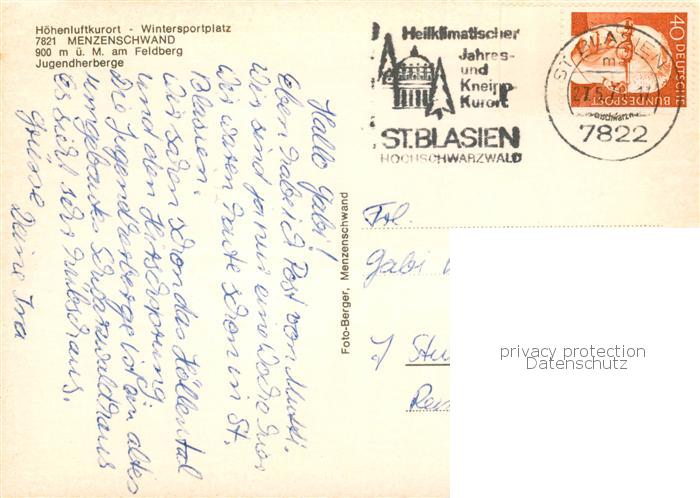 Höhenluftkurort - Wintersportplatz
7821 MENZENSCHWAND
900 m ü. M. am Feldberg
Jugendherberge
Hallo Gabi!
Eben habe ich Post von Mutti.
Wir sind ja nur eine Woche hier
Wir waren heute schon in St.
Blasien.
Wir sahen schon das Höllental
und den Hirschsprung.
Die Jugendherberge ist ein altes
umgebautes Schwarzwaldhaus
Es sieht sehr hübsch aus.
Grüße
Deine Ira
Foto-Berger, Menzenschwand
Heilklimatischer
Jahres-
und
Kneipp
Kurort
ST. BLASIEN
HOCHSCHWARZWALD
ST. BLASIEN
m
27.5.
7822
40
DEUTSCHE
BUNDESPOST
Frl.
Gabi
7 Stu
privacy protection
Datenschutz